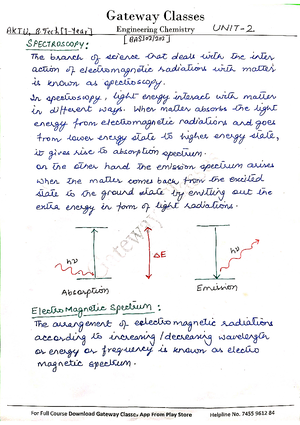 Gateway Classes
AKTU, B.Tech [1-Year]
Engineering Chemistry
UNIT-2
[BAS102/202]
SPECTROSCOPY:
The branch of science that deals with the inter
action of electromagnetic radiations with matter
is known as spectroscopy.
In spectroscopy, light energy interact with matter
in different ways. When matter absorbs the light
energy from electromagnetic radiations and goes
from lower energy state to higher energy state,
it gives rise to absorption spectrum.
On the other hand the emission spectrum arises
when the matter comes back from the excited
state to the ground state by emitting out the
extra energy in form of light radiations.
hν
ΔE
hν
Gateway
Absorption
Emission
ElectroMagnetic Spectrum:
The arrangement of eelectromagnetic radiations
according to increasing/decreasing wavelength
or energy or frequency is known as electro
magnetic spectrum.
For Full Course Download Gateway Classes App From Play Store
Helpline No. 7455 9612 84